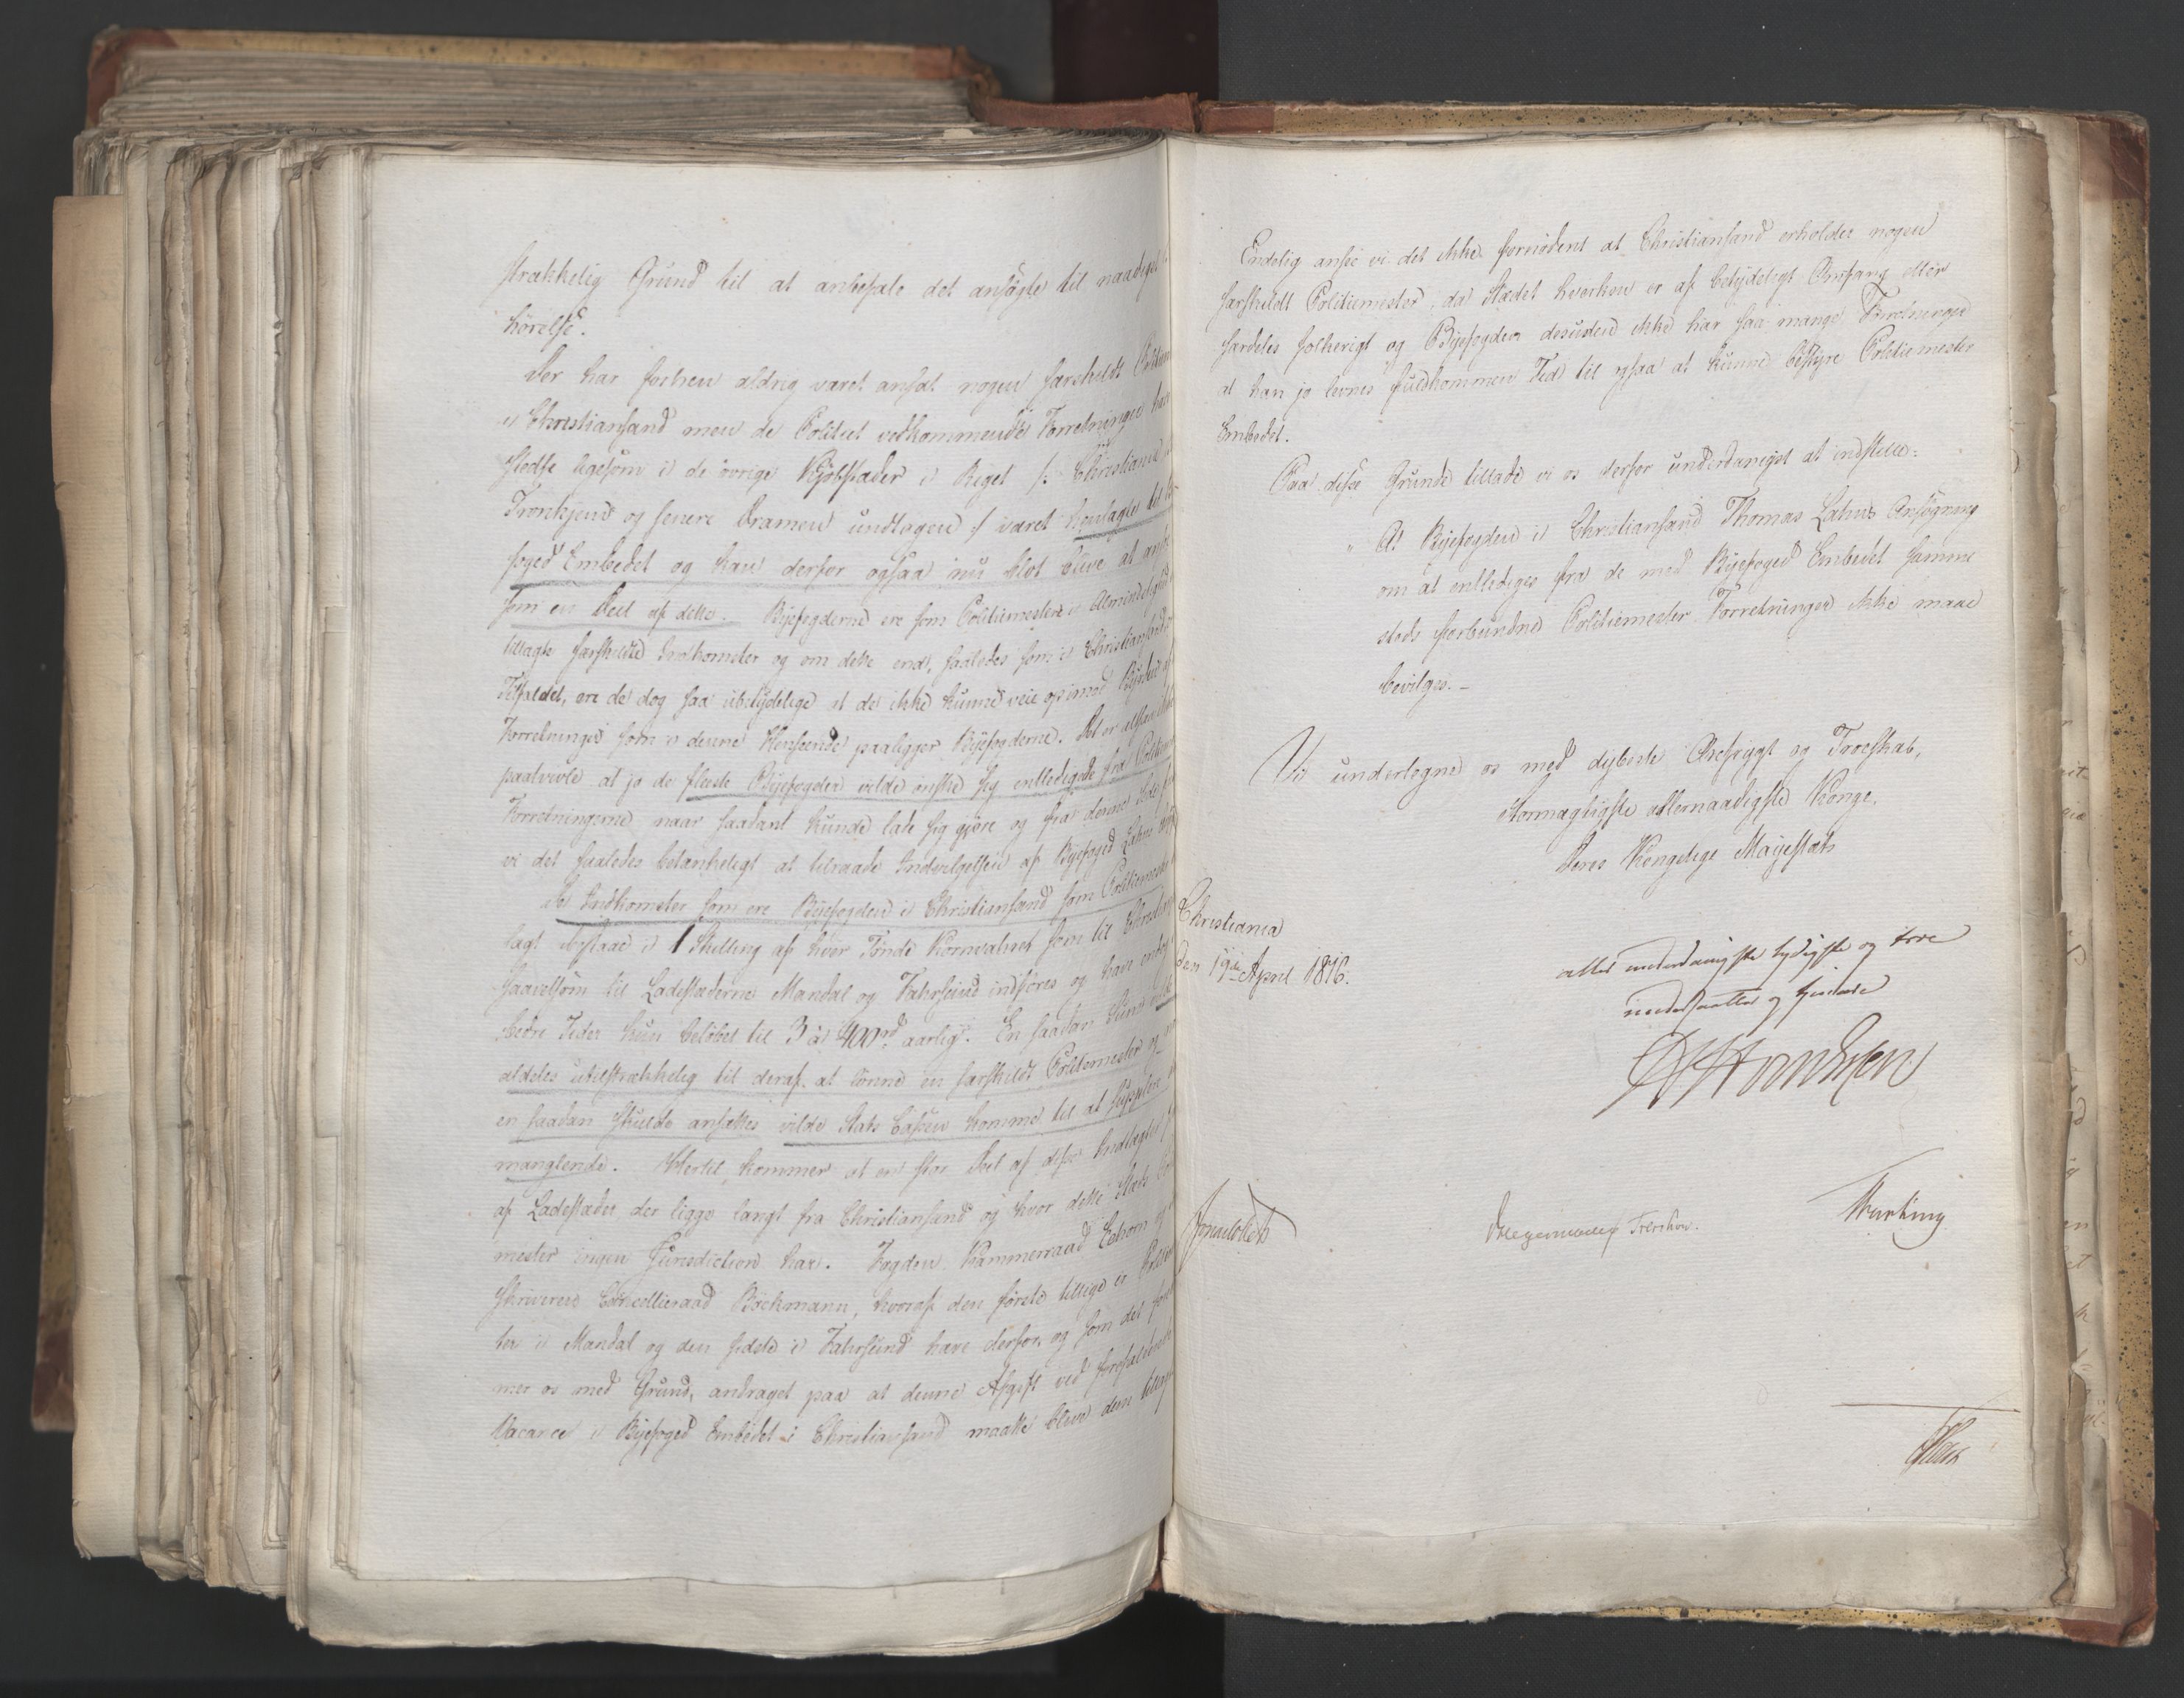 strækkelig Grund til at anbefale det ansøgte til naadigst
hørelse.
Der har forhen aldrig været ansat nogen særskildt
i Christiansand men de Politiet vedkommende Forretninger have
stedse ligesom i de øvrige Kjøbstæder i Riget /: Christiania
Tronhjem og senere Dramen undtagen :/ været henlagte til
foged Embedet og kan derfor ogsaa nu blot blive at
som en Deel af dette. Byefogderne ere som Politiemestere i Almindelighed
tillagte særskildte Indkomster og om dette end, saaledes som i Christiansands
Tilfældet, ere de dog saa ubetydelige at de ikke kunne veie op imod Byrden af
Forretninger som i denne Henseende paaligger Byefogderne. Det er altsaa
paatvivle at jo de fleeste Byefogder vilde ønske sig entledigede fra
Forretningerne naar saadant kunde lade sig gjøre og fra denne Side
vi det saaledes betænkeligt at tilraade Indvilgelsen af Byefoged Lahns
De Indkomster som ere Byefogden i Christiansand som Politiemester
lagt bestaae i 1 Skilling af hver Tønde Kornvahre som til
saavelsom til Ladestæderne Mandal og Fahrsund indføres og have
bedre Tider kun beløbet til 3 à 400 rd aarlig. En saadan Sum
aldeles utilstrækkelig til deraf at lønne en særskildt Politiemester og
en saadan skulde ansættes vilde Stats Cassen komme til at supplere
manglende. Hertil kommer at en stor Deel af disse Indtægter
af Ladestæder der ligge langt fra Christiansand og hvor dette Steds
mester ingen Jurisdiction har. Fogden Kammerraad
skriveren Cancellieraad Böckmann, hvoraf den første tillige er
ter i Mandal og den sidste i Fahrsund have derfor, og som det
mer os med Grund, andraget paa at denne Afgift ved forefaldende
Vacance i Byefoged Embedet i Christiansand maatte blive dem
Endelig ansee vi det ikke fornødent at Christiansand erholder nogen
særskildt Politiemester, da Stædet hverken er af betydeligt Omfang eller
særdeles folkerigt og Byefogden desuden ikke har saa mange Forretninger
at han jo levnes fuldkommen Tid til ogsaa at kunne bestyre Politiemester
Embedet.
Paa disse Grunde tillade vi os derfor underdanigst at indstille:
„ At Byefogden i Christiansand Thomas Lahns Ansøgning
om at entlediges fra de med Byefoged Embedet samme
steds forbundne Politiemester Forretninger ikke maae
bevilges. –
Vi undertegne os med dybeste Ærefrygt og Troeskab,
Stormægtigste allernaadigste Konge.
Deres Kongelige Majestæts
Christiania
den 19de April 1816.
aller underdanigste lydigste og troe
undersaatter og tjenere
Treschow.